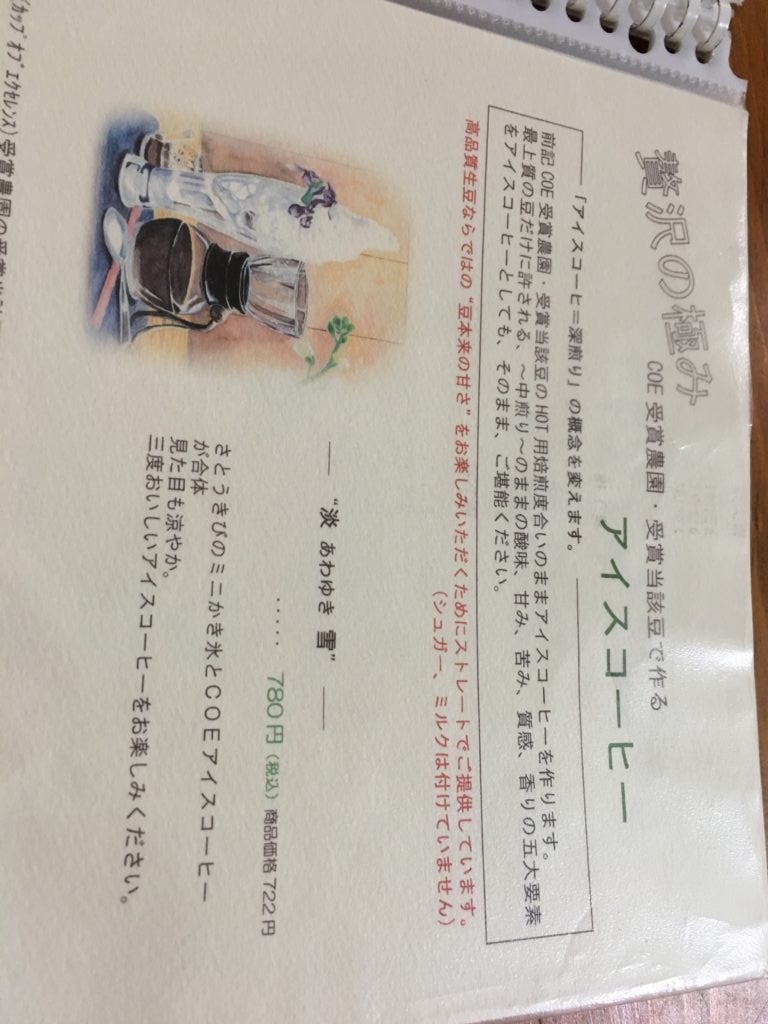 贅沢の極み
COE 受賞農園・受賞当該豆で作る
アイスコーヒー
「アイスコーヒ＝深煎り」の概念を変えます。
前記 COE 受賞農園・受賞当該豆の HOT 用焙煎度合いのままアイスコーヒーを作ります。
最上質の豆だけに許される、～中煎り～のままの酸味、甘み、苦み、質感、香りの五大要素
をアイスコーヒーとしても、そのまま、ご堪能ください。
高品質生豆ならではの“豆本来の甘さ”をお楽しみいただくためにストレートでご提供しています。
（シュガー、ミルクは付けていません）
― “淡 あわゆき 雪” ―
‥‥‥ 780円（税込）商品価格722円
さとうきびのミニかき氷とＣＯＥアイスコーヒー
が合体
見た目も涼やか。
三度おいしいアイスコーヒーをお楽しみください。
（ｶｯﾌﾟ ｵﾌﾞ ｴｸｾﾚﾝｽ）受賞農園の受賞